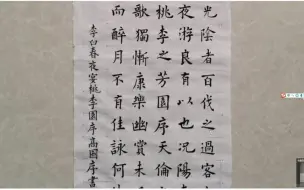 光陰者百代之過客
夜游良有以也况陽
桃李之芳園序天倫
歌獨慚康樂幽賞未
而醉月不有佳詠何
李白春夜宴桃李園序高國序書